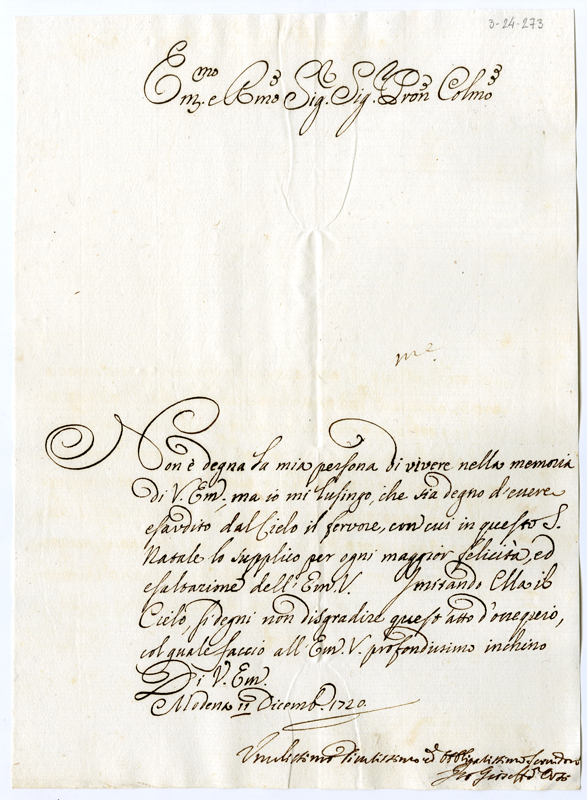 3-24-273
Em.mo e Rmo Sig. Sig. Pron Colmo
me
Non è degna la mia persona di vivere nella memoria
di V. Em., ma io mi lusingo, che sia degno d'essere
esaudito dal Cielo il fervore, con cui in questo S.
Natale lo supplico per ogni maggior felicità, ed
esaltazione dell'Em. V. Imitando Ella il
Cielo, si degni non disgradire quest'atto d'ossequio,
col quale faccio all'Em. V. profondissimo inchino
Di V. Em.
Modena 11 Dicemb. 1720.
Umilissimo ed Obbligatissimo Servidore